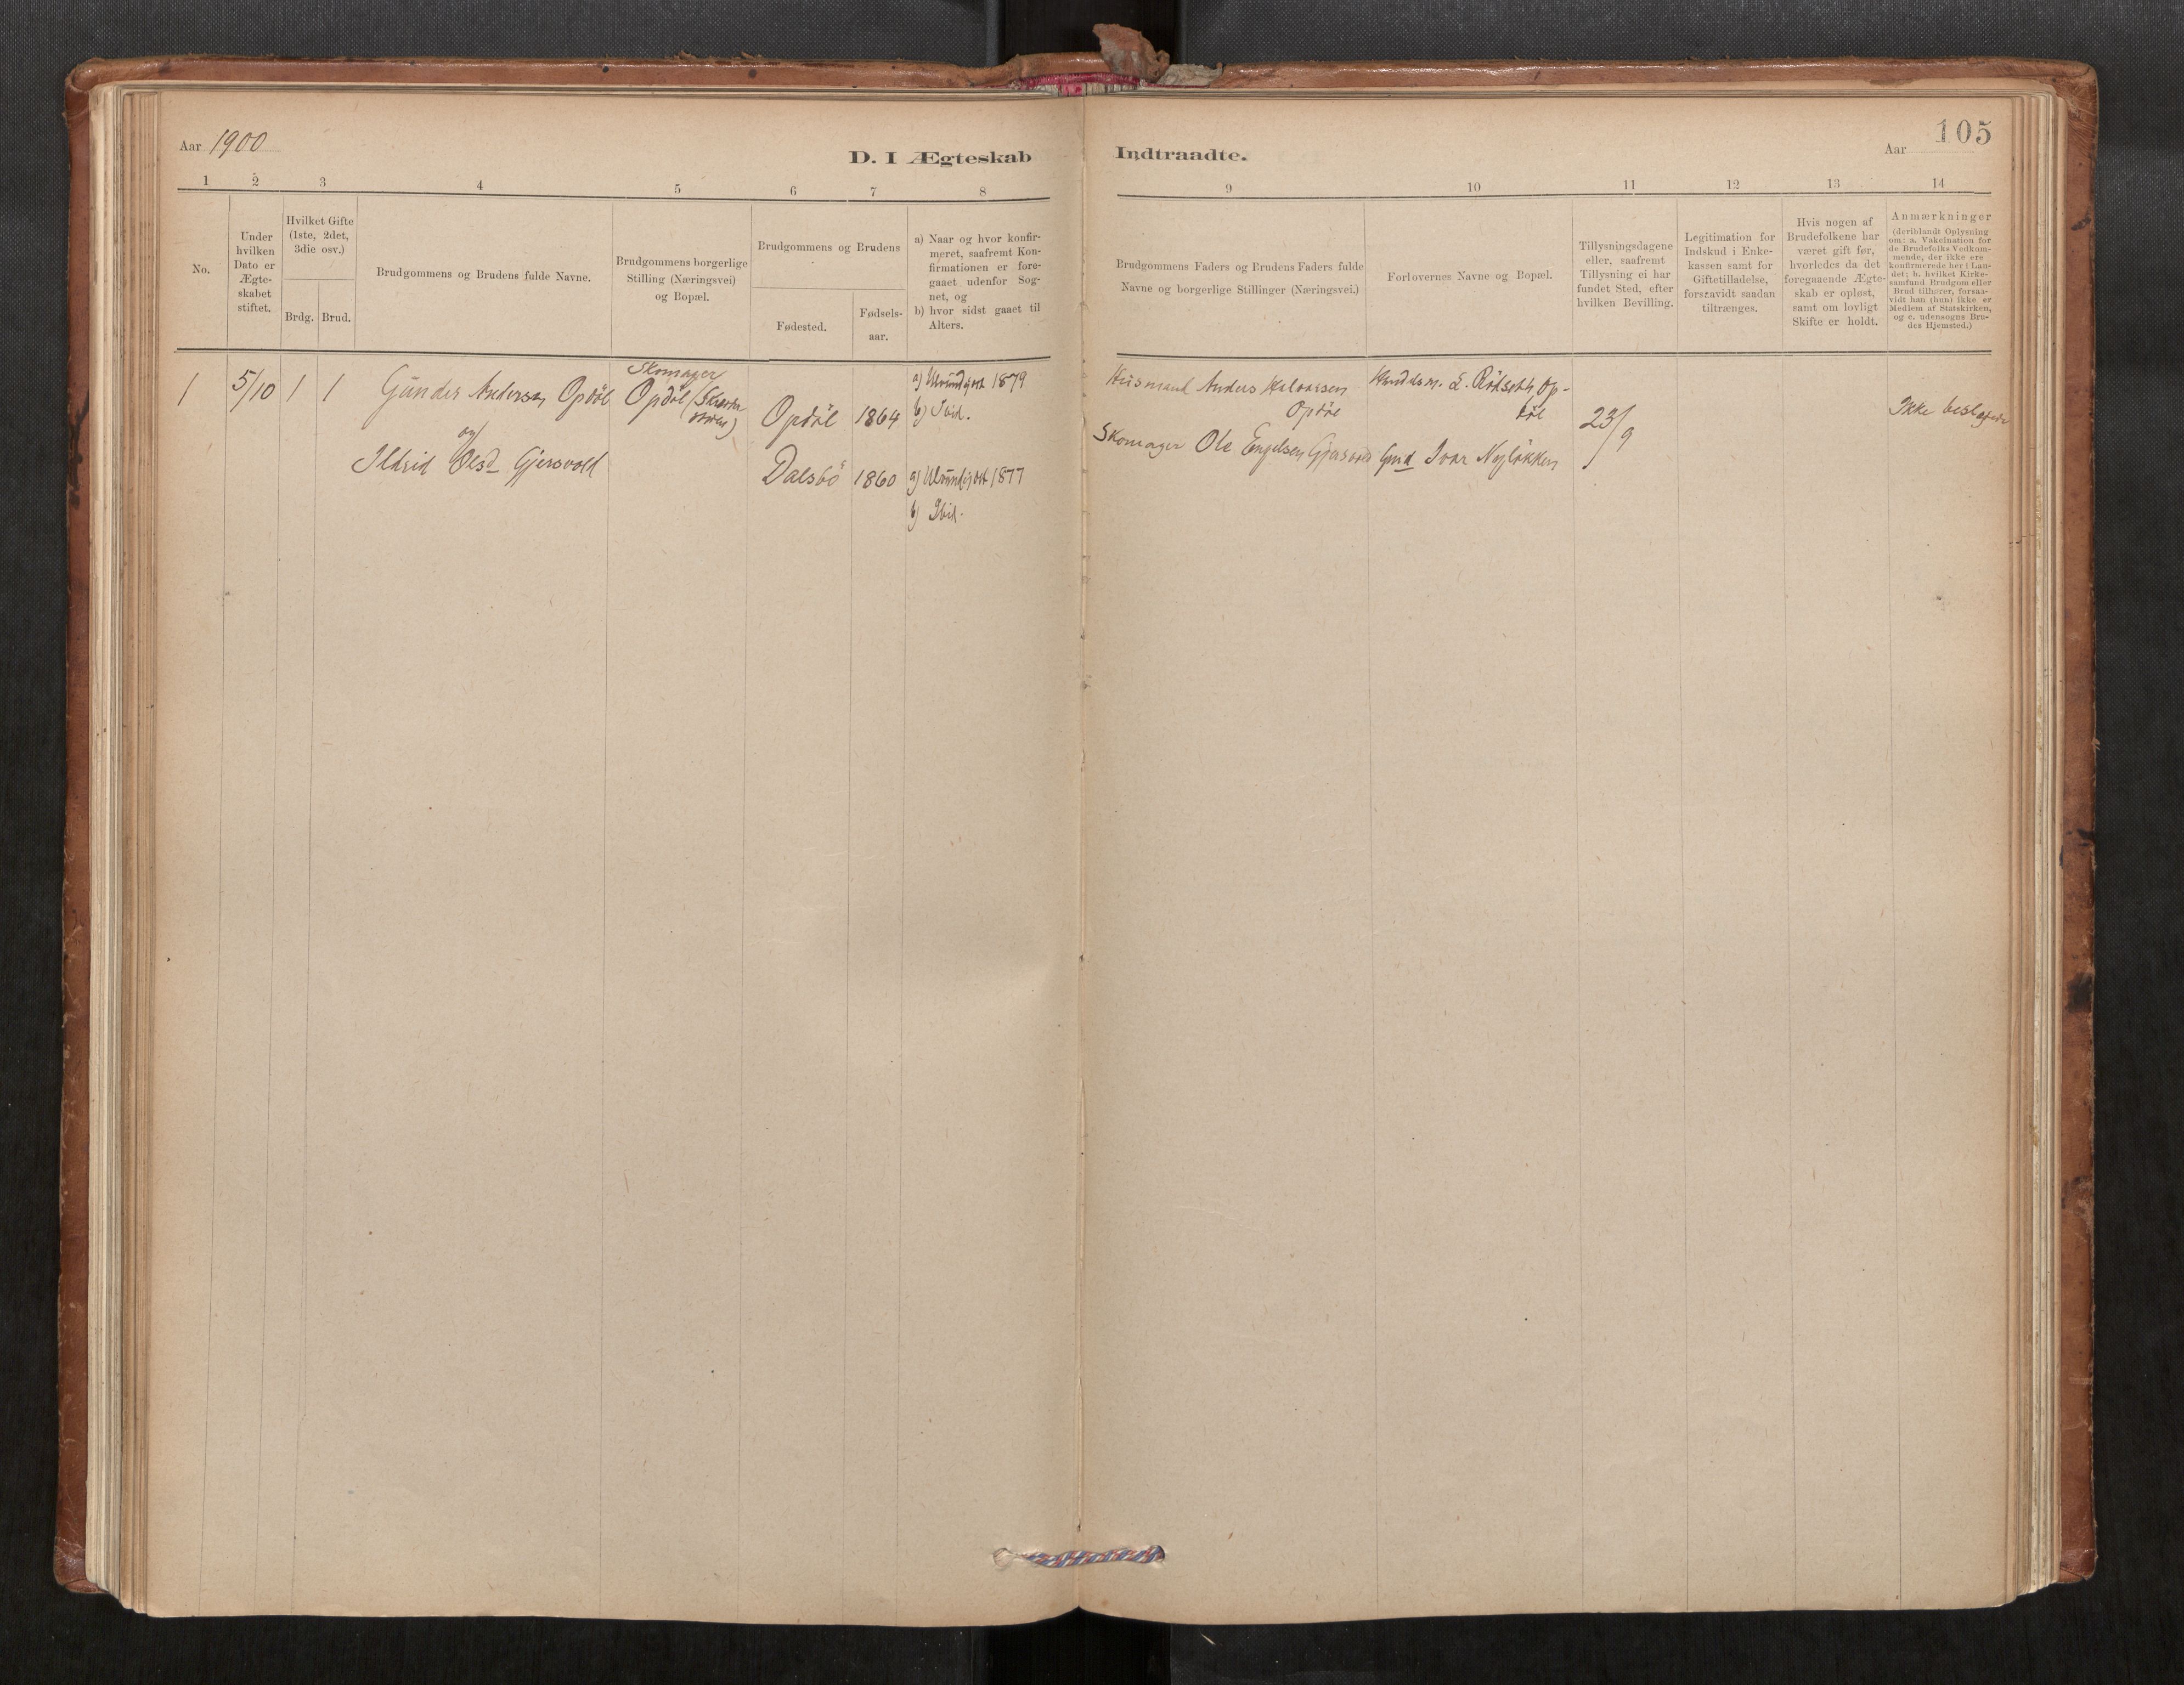 Aar 1900
D. I Ægteskab
1 2 3 4 5 6 7 8
No.
Under
hvilken
Dato er
Ægte-
skabet
stiftet.
Hvilket Gifte
(1ste, 2det,
3die osv.)
Brdg. Brud.
Brudgommens og Brudens fulde Navne.
Brudgommens borgerlige
Stilling (Næringsvei)
og Bopæl.
Brudgommens og Brudens
Fødested.
Fødsels-
aar.
a) Naar og hvor konfir-
meret, saafremt Kon-
firmationen er fore-
gaaet udenfor Sog-
net, og
b) hvor sidst gaaet til
Alters.
1 5/10 1 1 Gunder Andersen Opdöl
Skomager
Opdöl
Opdöl 1864
a) Ulvundejdet 1879
b) Ibid.
og
Ildrid Olsd Gjersvold
Dalsbö 1860
a) Ulvundejdet 1877
b) Ibid.
105
Indtraadte.
Aar
9 10 11 12 13 14
Brudgommens Faders og Brudens Faders fulde
Navne og borgerlige Stillinger (Næringsvei.)
Forlovernes Navne og Bopæl.
Tillysningsdagene
eller, saafremt
Tillysning ei har
fundet Sted, efter
hvilken Bevilling.
Legitimation for
Indskud i Enke-
kassen samt for
Giftetilladelse,
forsaavidt saadan
tiltrænges.
Hvis nogen af
Brudefolkene har
været gift før,
hvorledes da det
foregaaende Ægte-
skab er opløst,
samt om lovligt
Skifte er holdt.
Anmærkninger
(deriblandt Oplysning
om: a. Vakcination for
de Brudefolks Vedkom-
mende, der ikke ere
konfirmerede her i Lan-
det; b. hvilket Kirke-
samfund Brudgom eller
Brud tilhører, forsaa-
vidt han (hun) ikke er
Medlem af Statskirken,
og c. udensogns Bru-
des Hjemsted.)
Husmand Anders Halvorsen
Opdöl
L. Rödseth, Op-
döl
23/9
Ikke beslægtede
Skomager Ole Engelsen Gjersvold
Gmd Ivar Nyløkken